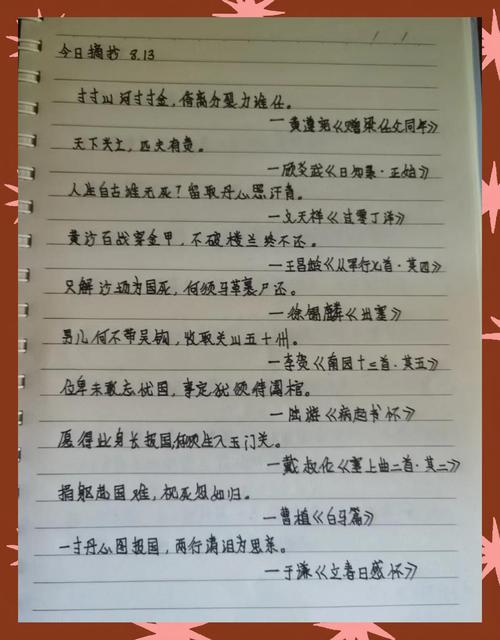 今日摘抄 8.13
寸寸山河寸寸金，侉离分裂力谁任。
一黄遵宪《赠梁任父同年》
天下兴亡，匹夫有责。
一顾炎武《日知录·正始》
人生自古谁无死？留取丹心照汗青。
一文天祥《过零丁洋》
黄沙百战穿金甲，不破楼兰终不还。
一王昌龄《从军行七首·其四》
只解沙场为国死，何须马革裹尸还。
一徐锡麟《出塞》
男儿何不带吴钩，收取关山五十州。
一李贺《南园十三首·其五》
位卑未敢忘忧国，事定犹须待阖棺。
一陆游《病起书怀》
愿得此身长报国，何须生入玉门关。
一戴叔伦《塞上曲二首·其二》
捐躯赴国难，视死忽如归。
一曹植《白马篇》
一寸丹心图报国，两行清泪为思亲。
一于谦《立春日感怀》